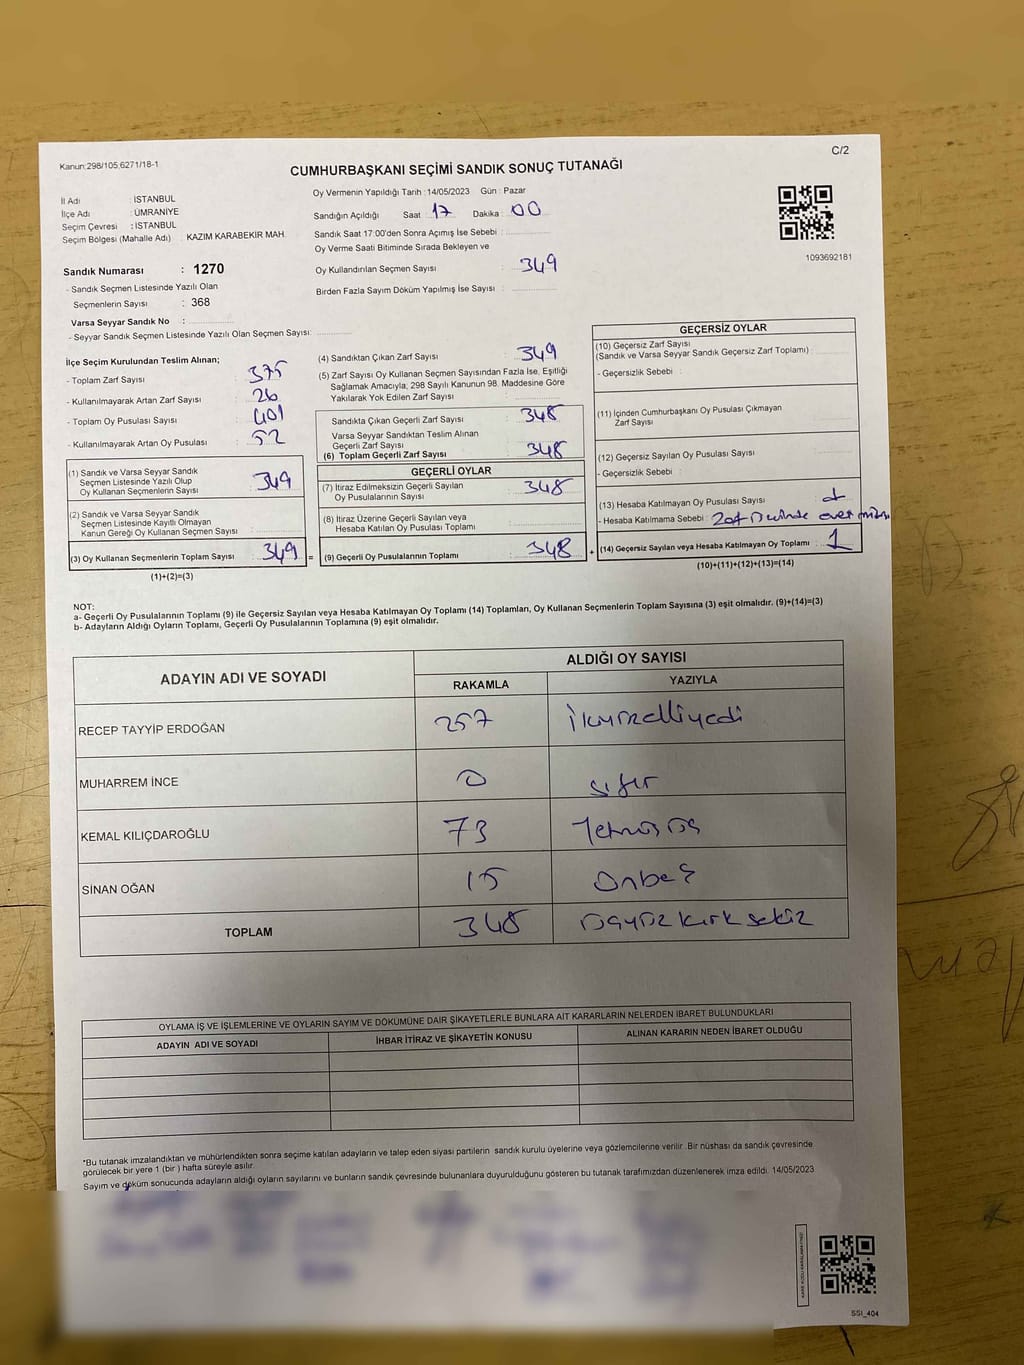 Kanun:298/105,6271/18-1
C/2
CUMHURBAŞKANI SEÇİMİ SANDIK SONUÇ TUTANAĞI
İl Adı : İSTANBUL
İlçe Adı : ÜMRANİYE
Seçim Çevresi : İSTANBUL
Seçim Bölgesi (Mahalle Adı) : KAZIM KARABEKİR MAH.
Sandık Numarası : 1270
- Sandık Seçmen Listesinde Yazılı Olan
Seçmenlerin Sayısı : 368
Varsa Seyyar Sandık No :
- Seyyar Sandık Seçmen Listesinde Yazılı Olan Seçmen Sayısı:
Oy Vermenin Yapıldığı Tarih :14/05/2023 Gün : Pazar
Sandığın Açıldığı Saat 17 Dakika : 00
Sandık Saat 17:00'den Sonra Açımış İse Sebebi :
Oy Verme Saati Bitiminde Sırada Bekleyen ve
Oy Kullandırılan Seçmen Sayısı : 349
Birden Fazla Sayım Döküm Yapılmış İse Sayısı :
1093692181
İlçe Seçim Kurulundan Teslim Alınan;
- Toplam Zarf Sayısı : 375
- Kullanılmayarak Artan Zarf Sayısı : 26
- Toplam Oy Pusulası Sayısı : 401
- Kullanılmayarak Artan Oy Pusulası : 52
(1) Sandık ve Varsa Seyyar Sandık
Seçmen Listesinde Yazılı Olup
Oy Kullanan Seçmenlerin Sayısı : 349
(2) Sandık ve Varsa Seyyar Sandık
Seçmen Listesinde Kayıtlı Olmayan
Kanun Gereği Oy Kullanan Seçmen Sayısı :
(3) Oy Kullanan Seçmenlerin Toplam Sayısı : 349 =
(1)+(2)=(3)
(4) Sandıktan Çıkan Zarf Sayısı : 349
(5) Zarf Sayısı Oy Kullanan Seçmen Sayısından Fazla İse, Eşitliği
Sağlamak Amacıyla, 298 Sayılı Kanunun 98. Maddesine Göre
Yakılarak Yok Edilen Zarf Sayısı :
Sandıkta Çıkan Geçerli Zarf Sayısı : 348
Varsa Seyyar Sandıktan Teslim Alınan
Geçerli Zarf Sayısı :
(6) Toplam Geçerli Zarf Sayısı : 348
GEÇERLİ OYLAR
(7) İtiraz Edilmeksizin Geçerli Sayılan
Oy Pusulalarının Sayısı : 348
(8) İtiraz Üzerine Geçerli Sayılan veya
Hesaba Katılan Oy Pusulası Toplamı :
(9) Geçerli Oy Pusulalarının Toplamı : 348 +
GEÇERSİZ OYLAR
(10) Geçersiz Zarf Sayısı
(Sandık ve Varsa Seyyar Sandık Geçersiz Zarf Toplamı) :
- Geçersizlik Sebebi :
(11) İçinden Cumhurbaşkanı Oy Pusulası Çıkmayan
Zarf Sayısı :
(12) Geçersiz Sayılan Oy Pusulası Sayısı :
- Geçersizlik Sebebi :
(13) Hesaba Katılmayan Oy Pusulası Sayısı :
- Hesaba Katılmama Sebebi : Zarf üzerinde evet mührü
(14) Geçersiz Sayılan veya Hesaba Katılmayan Oy Toplamı : 1
(10)+(11)+(12)+(13)=(14)
NOT:
a- Geçerli Oy Pusulalarının Toplamı (9) ile Geçersiz Sayılan veya Hesaba Katılmayan Oy Toplamı (14) Toplamları, Oy Kullanan Seçmenlerin Toplam Sayısına (3) eşit olmalıdır. (9)+(14)=(3)
b- Adayların Aldığı Oyların Toplamı, Geçerli Oy Pusulalarının Toplamına (9) eşit olmalıdır.
ADAYIN ADI VE SOYADI
ALDIĞI OY SAYISI
RAKAMLA YAZIYLA
RECEP TAYYİP ERDOĞAN 257 ikiyüzelliyedi
MUHARREM İNCE 0 sıfır
KEMAL KILIÇDAROĞLU 73 Yetmişüç
SİNAN OĞAN 15 Onbeş
TOPLAM 348 üçyüzkırksekiz
OYLAMA İŞ VE İŞLEMLERİNE VE OYLARIN SAYIM VE DÖKÜMÜNE DAİR ŞİKAYETLERLE BUNLARA AİT KARARLARIN NELERDEN İBARET BULUNDUKLARI
ADAYIN ADI VE SOYADI İHBAR İTİRAZ VE ŞİKAYETİN KONUSU ALINAN KARARIN NEDEN İBARET OLDUĞU
*Bu tutanak imzalandıktan ve mühürlendikten sonra seçime katılan adayların ve talep eden siyasi partilerin sandık kurulu üyelerine veya gözlemcilerine verilir. Bir nüshası da sandık çevresinde
görülecek bir yere 1 (bir ) hafta süreyle asılır.
Sayım ve döküm sonucunda adayların aldığı oyların sayılarını ve bunların sandık çevresinde bulunanlara duyurulduğunu gösteren bu tutanak tarafımızdan düzenlenerek imza edildi. 14/05/2023
SSI_404